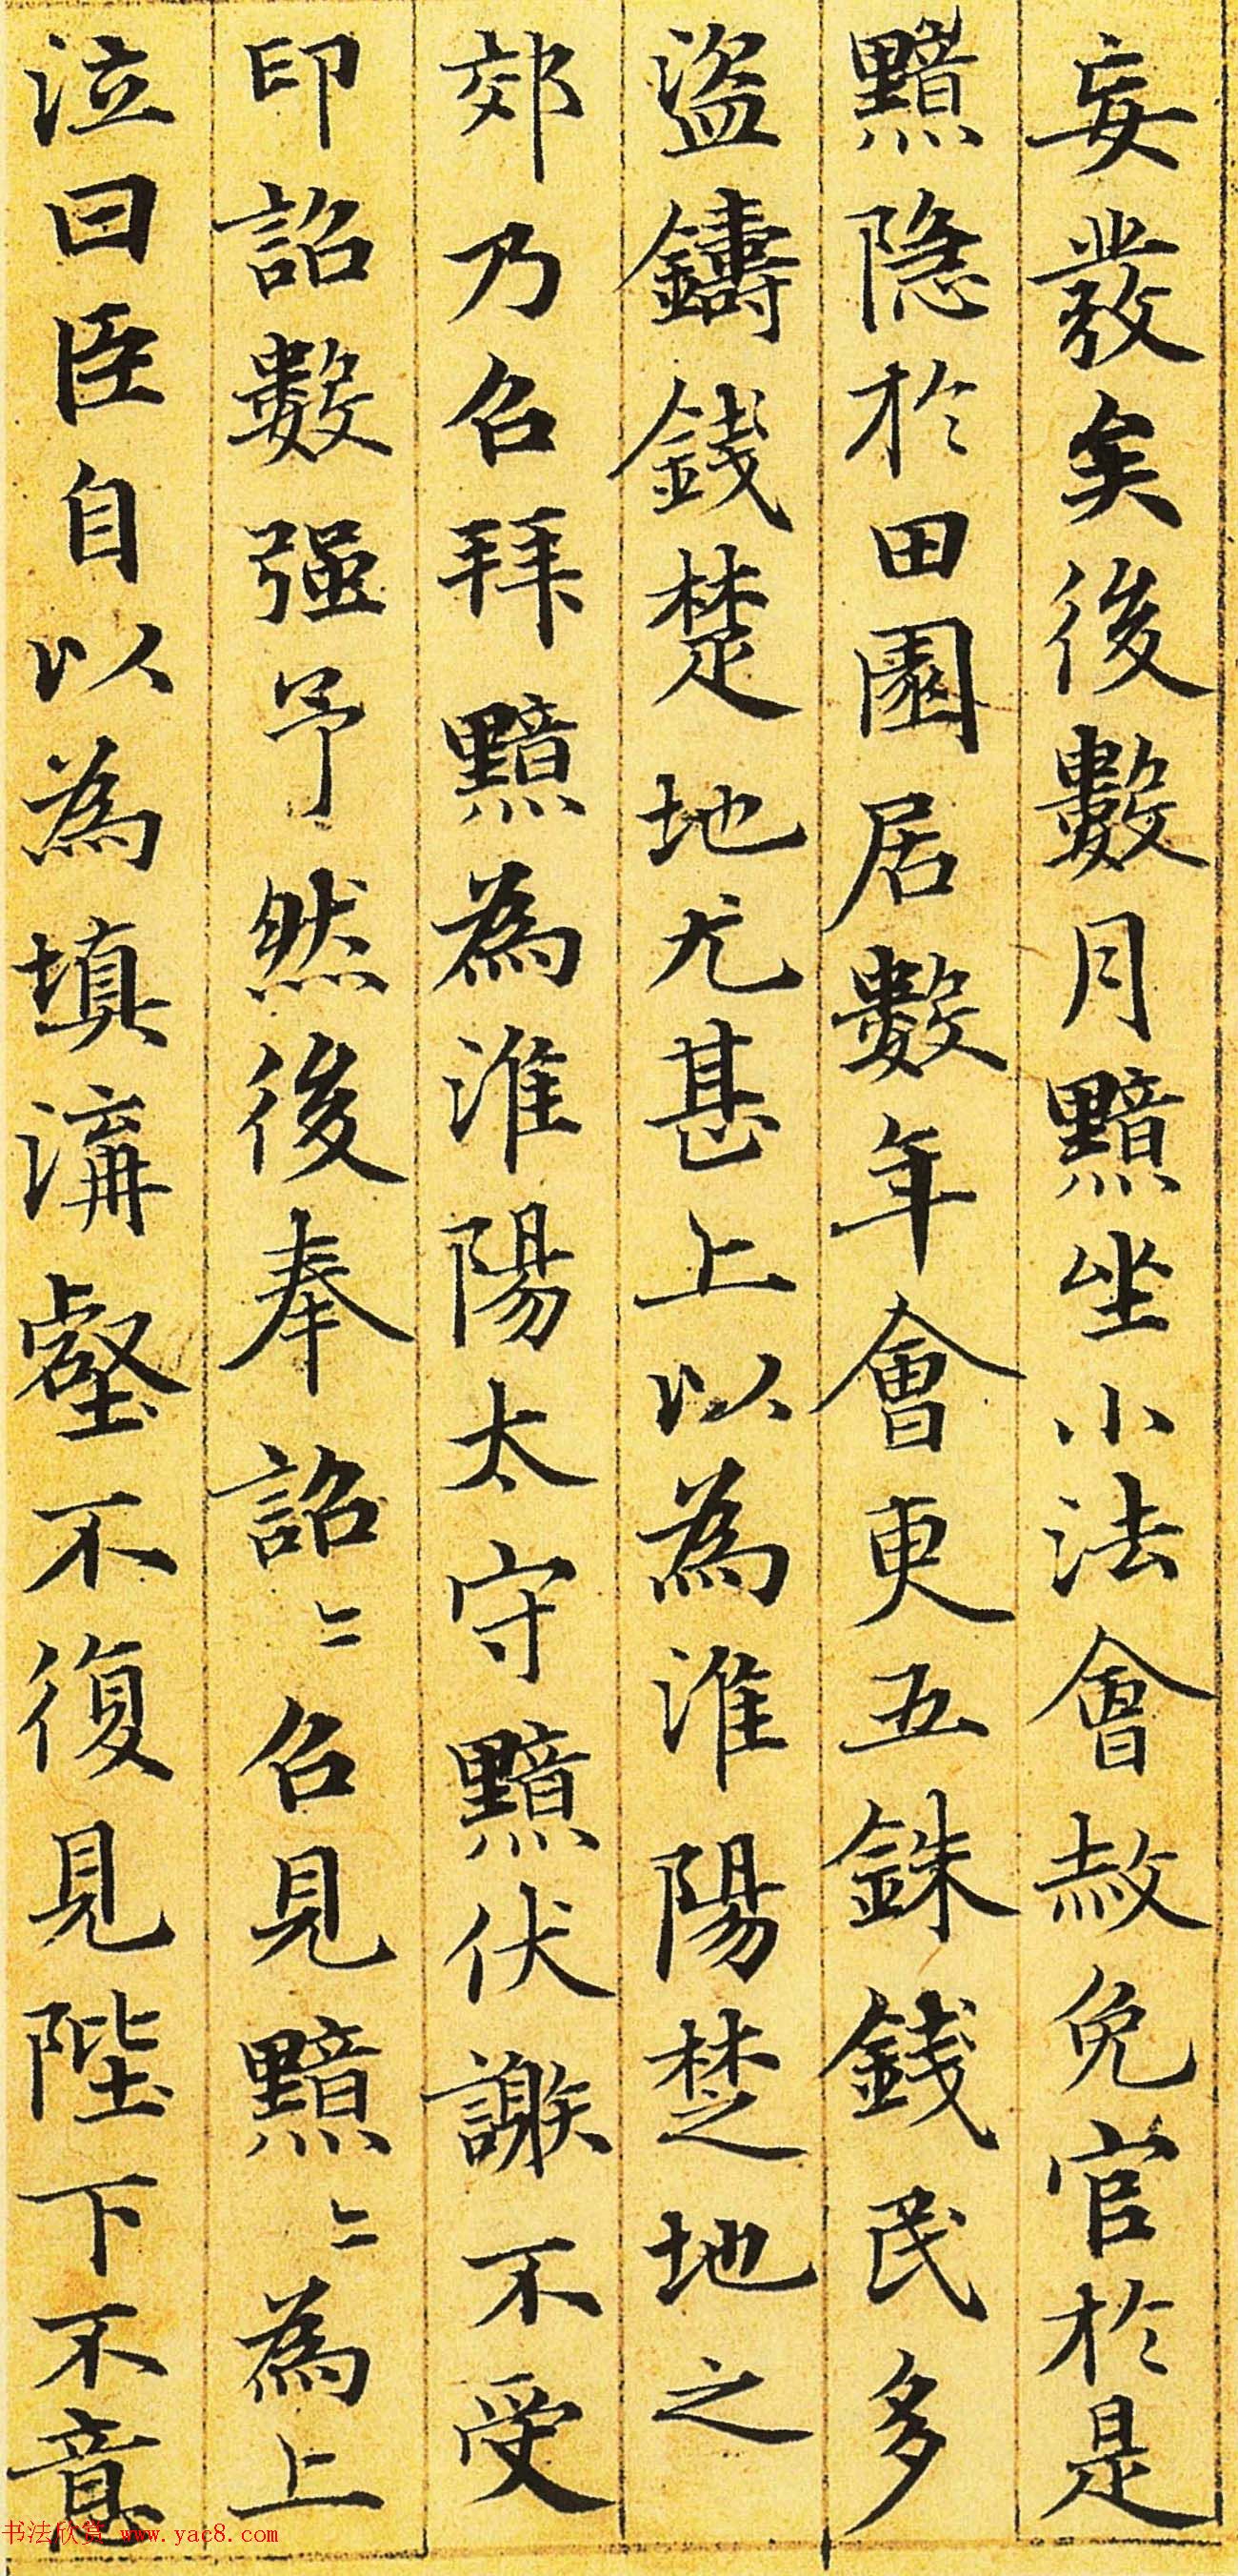 妄發矣後數月黯坐小法會赦免官於是
黯隱於田園居數年會更五銖錢民多
盜鑄錢楚地尤甚上以為淮陽楚地之
郊乃召拜黯為淮陽太守黯伏謝不受
印詔數强予然後奉詔〻召見黯〻為上
泣曰臣自以為填溝壑不復見陛下不意
书法欣赏 www.yac8.com